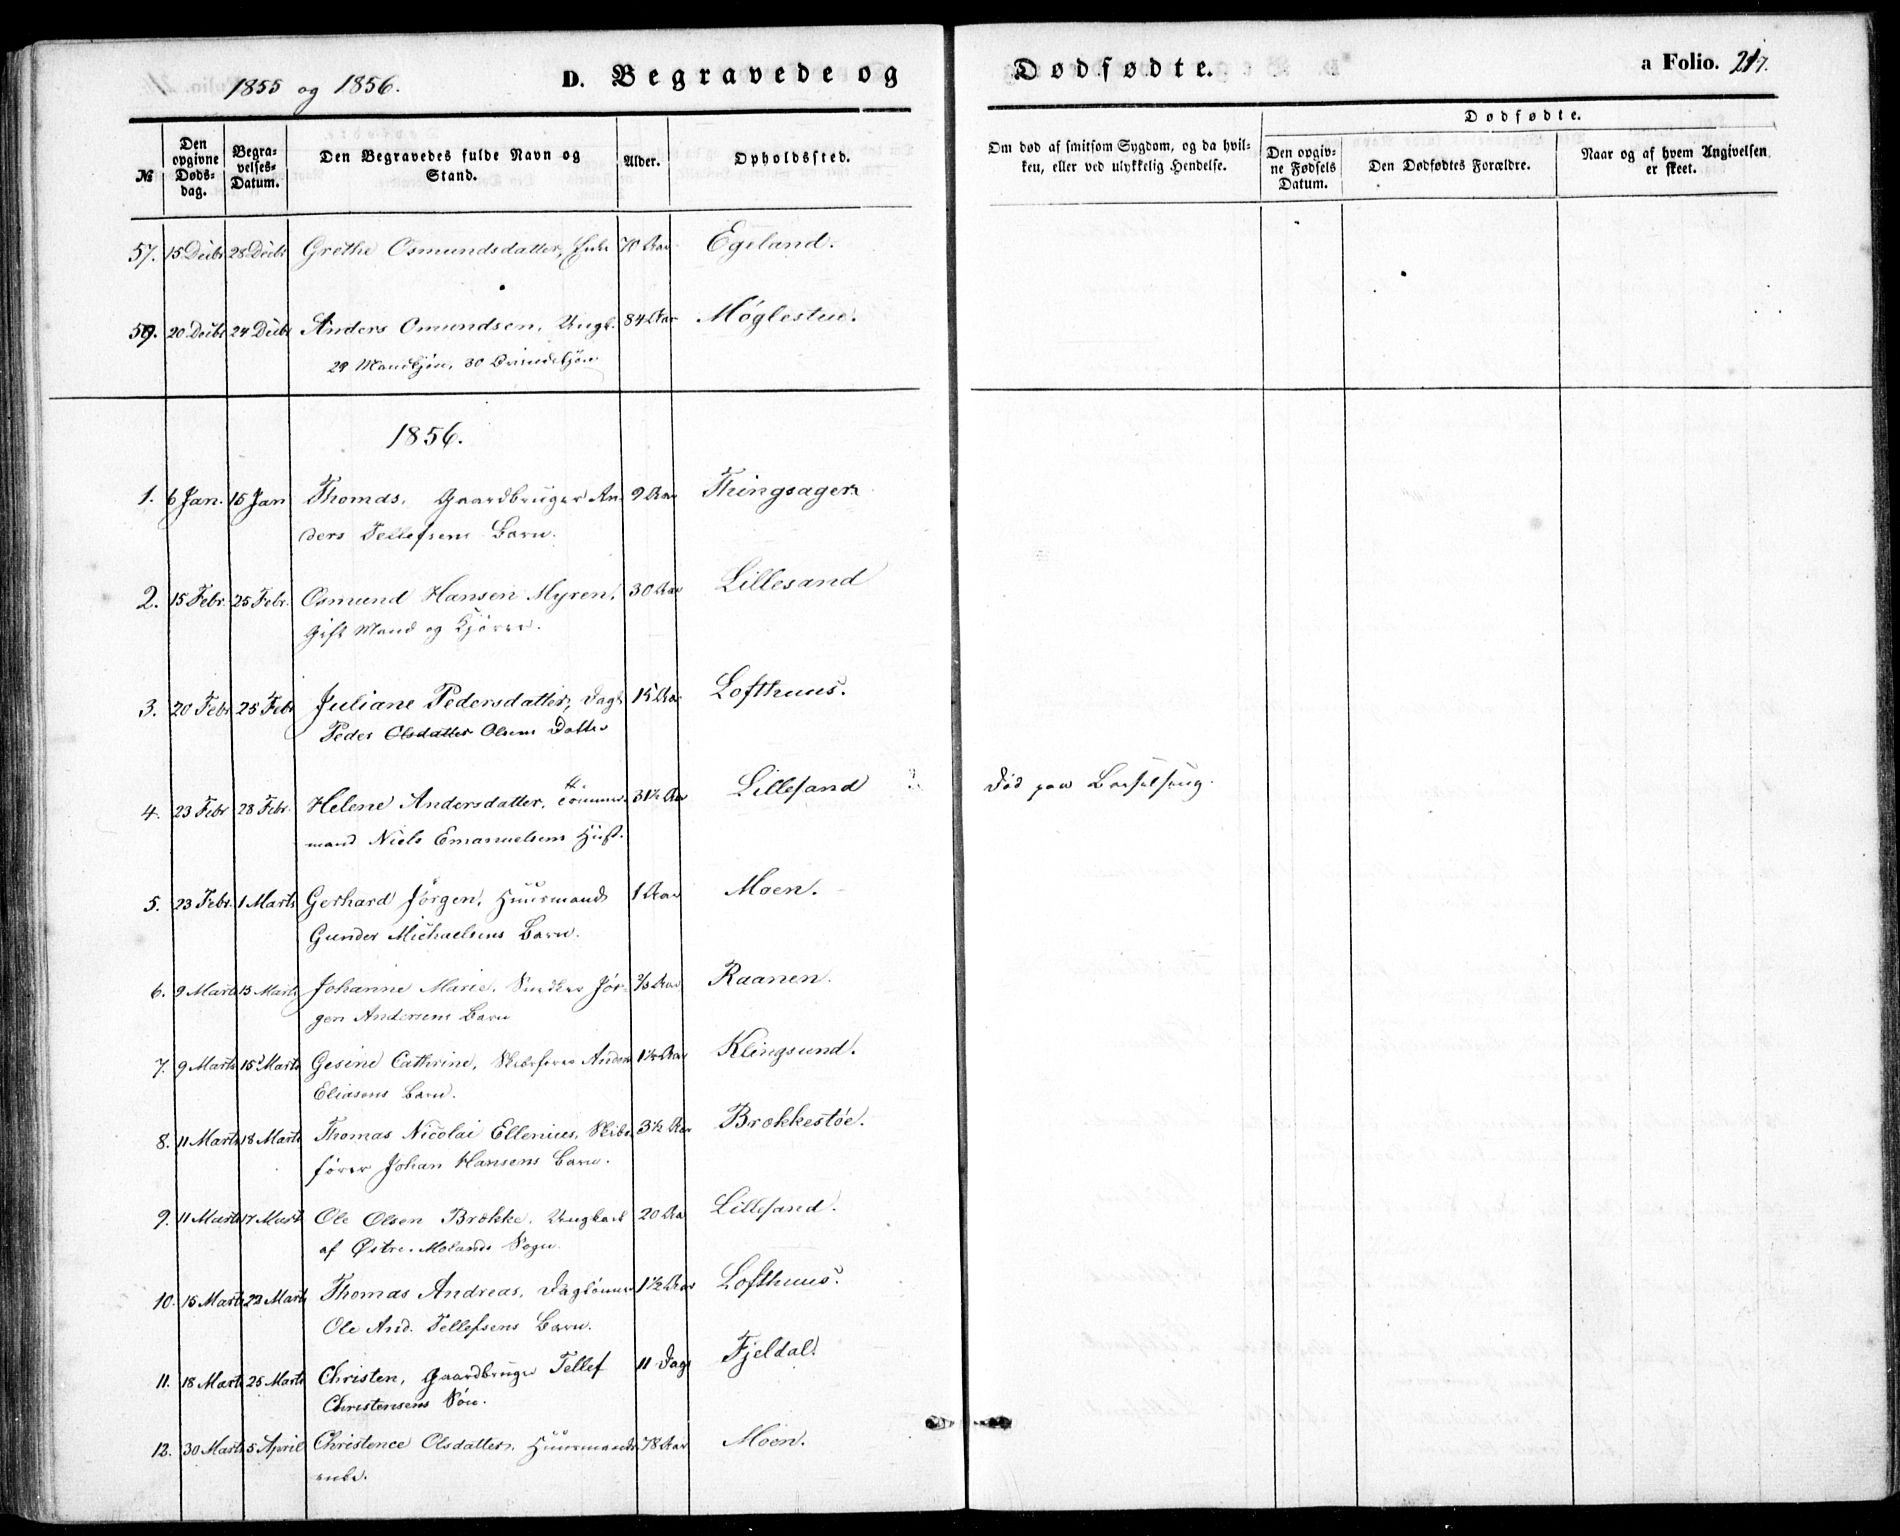 1855 og 1856.
D. Begravede og
Dødfødte.
a Folio. 217.
№
Den opgivne Døds-dag.
Begra-velses-Datum.
Den Begravedes fulde Navn og Stand.
Alder.
Opholdssted.
Om død af smitsom Sygdom, og da hvil-
ken, eller ved ulykkelig Hendelse.
Dødfødte.
Den opgiv-ne Fødsels Datum.
Den Dødfødtes Forældre.
Naar og af hvem Angivelsen
er skeet.
57. 15 Decbr 28 Decbr Grethe Osmundsdatter, Enke 70 Aar Egeland.
59. 20 Decbr 24 Decbr Anders Omundsen, Ungk. 84 Aar Møglestue.
29 Mandkjøn, 30 Qvindekjøn
1856.
1. 6 Jan. 15 Jan Thomas, Gaardbruger An- 9 Aar Thingsager
ders Tellefsens Barn.
2. 15 Febr. 25 Febr. Osmund Hansen Myren, 30 Aar Lillesand
Gift Mand og
3. 20 Febr 25 Febr Juliane Pedersdatter, Dagl. 15 Aar Lofthuus.
Peder Olsdatter Olsens Datter
4. 23 Febr 28 Febr. Helene Andersdatter, Tømmer- 31½ Aar Lillesand Død paa Barselseng.
mand Niels Emanuelsens Hust.
5. 23 Febr. 1 Marts Gerhard Jørgen, Huusmand 1 Aar Moen.
Gunder Michaelsens Barn.
6. 9 Marts 15 Marts Johanne Marie, Snedker Jør- ⅔ Aar Raanen.
gen Andersens Barn
7. 9 Marts 15 Marts Gesine Cathrine, Skibsfører Anders 1½ Aar Klingsund.
Eliasens Barn.
8. 11 Marts 18 Marts Thomas Nicolai Ellenius, Skibs- 3½ Aar Brækkestøe.
fører Johan Hansens Barn.
9. 11 Marts 17 Marts Ole Olsen Brække, Ungkarl 20 Aar Lillesand.
af Østre-Molands Sogn.
10. 15 Marts 22 Marts Thomas Andreas, Daglønner 1½ Aar Lofthuus.
Ole And. Tellefsens Barn.
11. 18 Marts 25 Marts Christen, Gaardbruger Tellef 11 Dage Fjeldal.
Christensens Søn.
12. 30 Marts 5 April Christence Olsdatter, Huusmands- 78 Aar Moen.
enke.